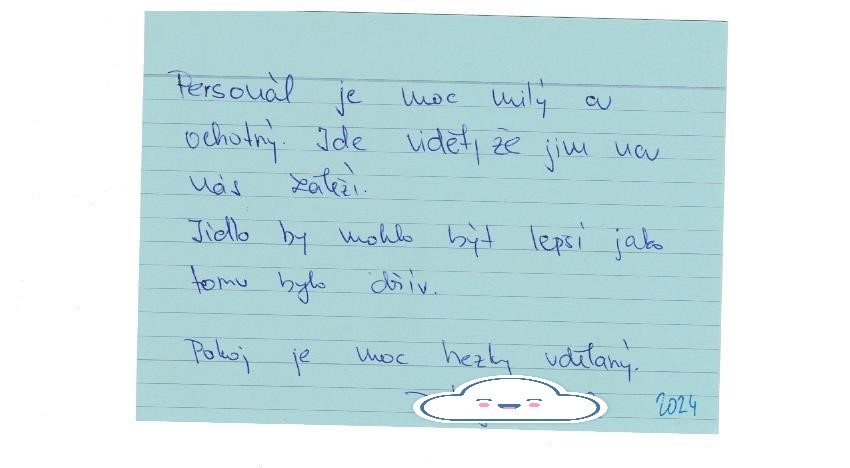 Personál je moc milý a
ochotný. Jde vidět, že jim na
nás záleží.
Jídlo by mohlo být lepší jako
tomu bylo dřív.
Pokoj je moc hezky udělaný.
2024